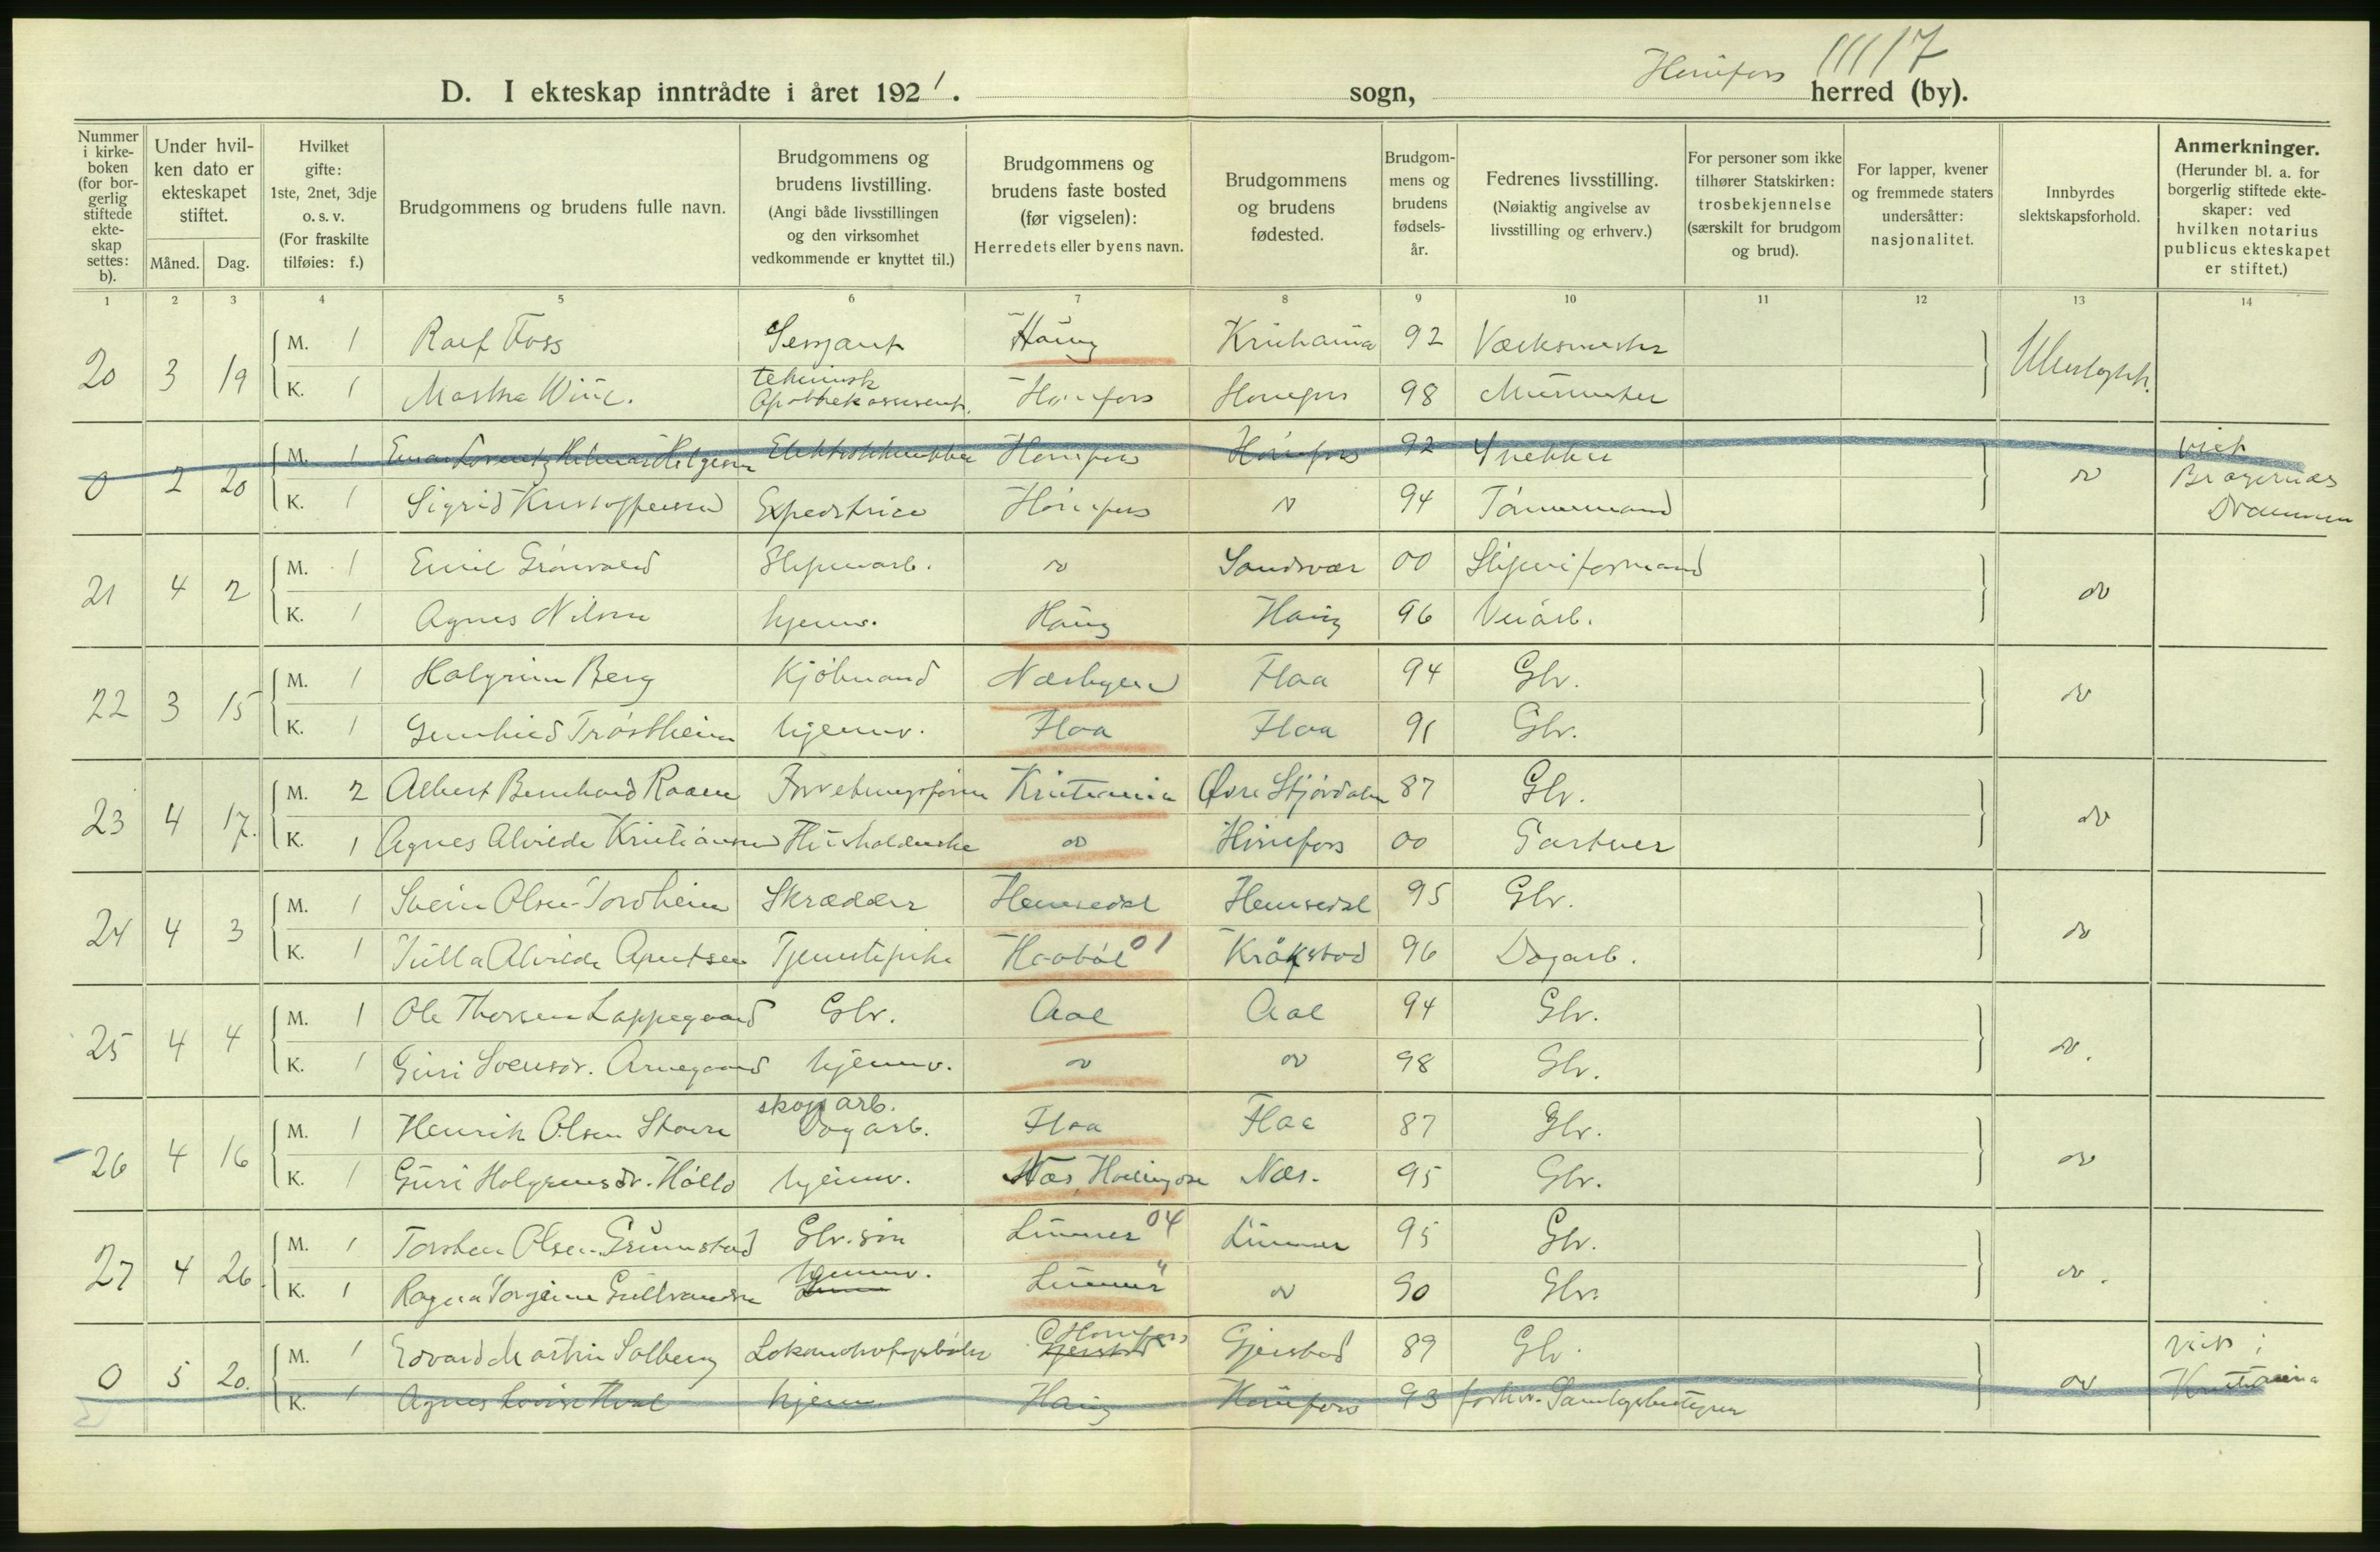 Hønefoss 11117
D. I ekteskap inntrådte i året 1921. sogn, herred (by).
Nummer i kirke- boken (for bor- gerlig stiftede ekte- skap settes: b).
Under hvil- ken dato er ekteskapet stiftet.
Måned. Dag.
Hvilket gifte: 1ste, 2net, 3dje o. s. v. (For fraskilte tilføies: f.)
Brudgommens og brudens fulle navn.
Brudgommens og brudens livstilling. (Angi både livsstillingen og den virksomhet vedkommende er knyttet til.)
Brudgommens og brudens faste bosted (før vigselen): Herredets eller byens navn.
Brudgommens og brudens fødested.
Brudgom- mens og brudens fødsels- år.
Fedrenes livsstilling. (Nøiaktig angivelse av livsstilling og erhverv.)
For personer som ikke tilhører Statskirken: trosbekjennelse (særskilt for brudgom og brud).
For lapper, kvener og fremmede staters undersåtter: nasjonalitet.
Innbyrdes slektskapsforhold.
Anmerkninger. (Herunder bl. a. for borgerlig stiftede ekte- skaper: ved hvilken notarius publicus ekteskapet er stiftet.)
1 2 3 4 5 6 7 8 9 10 11 12 13 14
20 3 19 M. 1 Rolf Foss Sersjant Haug Kristiania 92 Værksmester Ubeslegtet.
K. 1 Martha Wiik. teknisk Apothekassistent. Hønefoss Hønefoss 98 Murmester
0 2 20 M. 1 Einar Lorentz Hilmar Helgesen Elektrotekniker Hønefoss Hønefoss 92 Snekker do viet Bragernes Drammen
K. 1 Sigrid Kristoffersen Expeditrice Hønefoss do 94 Tømmermand
21 4 2 M. 1 Emil Grønvold Sliperiarb. do Sandsvær 00 Sliperiformand do
K. 1 Agnes Nilsen hjemv. Haug Haug 96 Veiarb.
22 3 15 M. 1 Halgrim Berg Kjøbmand Næsbyen Flaa 94 Gbr. do
K. 1 Gunhild Trøstheim hjemv. Flaa Flaa 91 Gbr.
23 4 17. M. 2 Albert Bernhard Raaen Forretningsfører Kristiania Øvre Stjørdalen 87 Gbr. do
K. 1 Agnes Alvilde Kristiansen Husholderske do Hønefoss 00 Gartner
24 4 3 M. 1 Svein Olsen Tordheim Skrædder Hemsedal Hemsedal 95 Gbr. do
K. 1 Julla Alvilde Arntsen Tjenestepike Haabøl 01 Kråkstad 96 Dagarb.
25 4 4 M. 1 Ole Thorsen Lappegaard Gbr. Aal Aal 94 Gbr. do.
K. 1 Guri Svensdr. Arnegaard hjemv. do do 98 Gbr.
26 4 16 M. 1 Henrik Olsen Stavn skogarb. Dagarb. Flaa Flaa 87 Gbr. do
K. 1 Guri Holgrimsdr. Hollo hjemv. Næs, Hallingdal Næs. 95 Gbr.
27 4 26. M. 1 Torsten Olsen Grimstad Gbr. søn Lunner 04 Lunner 95 Gbr. do.
K. 1 Ragna Torgine Gulbrandsen hjemv. Lunner " do 90 Gbr.
0 5 20. M. 1 Edvard Martin Solberg Lokomotivfyrbøter Gjerstad Hønefoss Gjerstad 89 Gbr. do viet i Kristiania
K. 1 Agnes Lovise Hval hjem Haug Hønefoss 93 forhv. Samlagsbestyrer